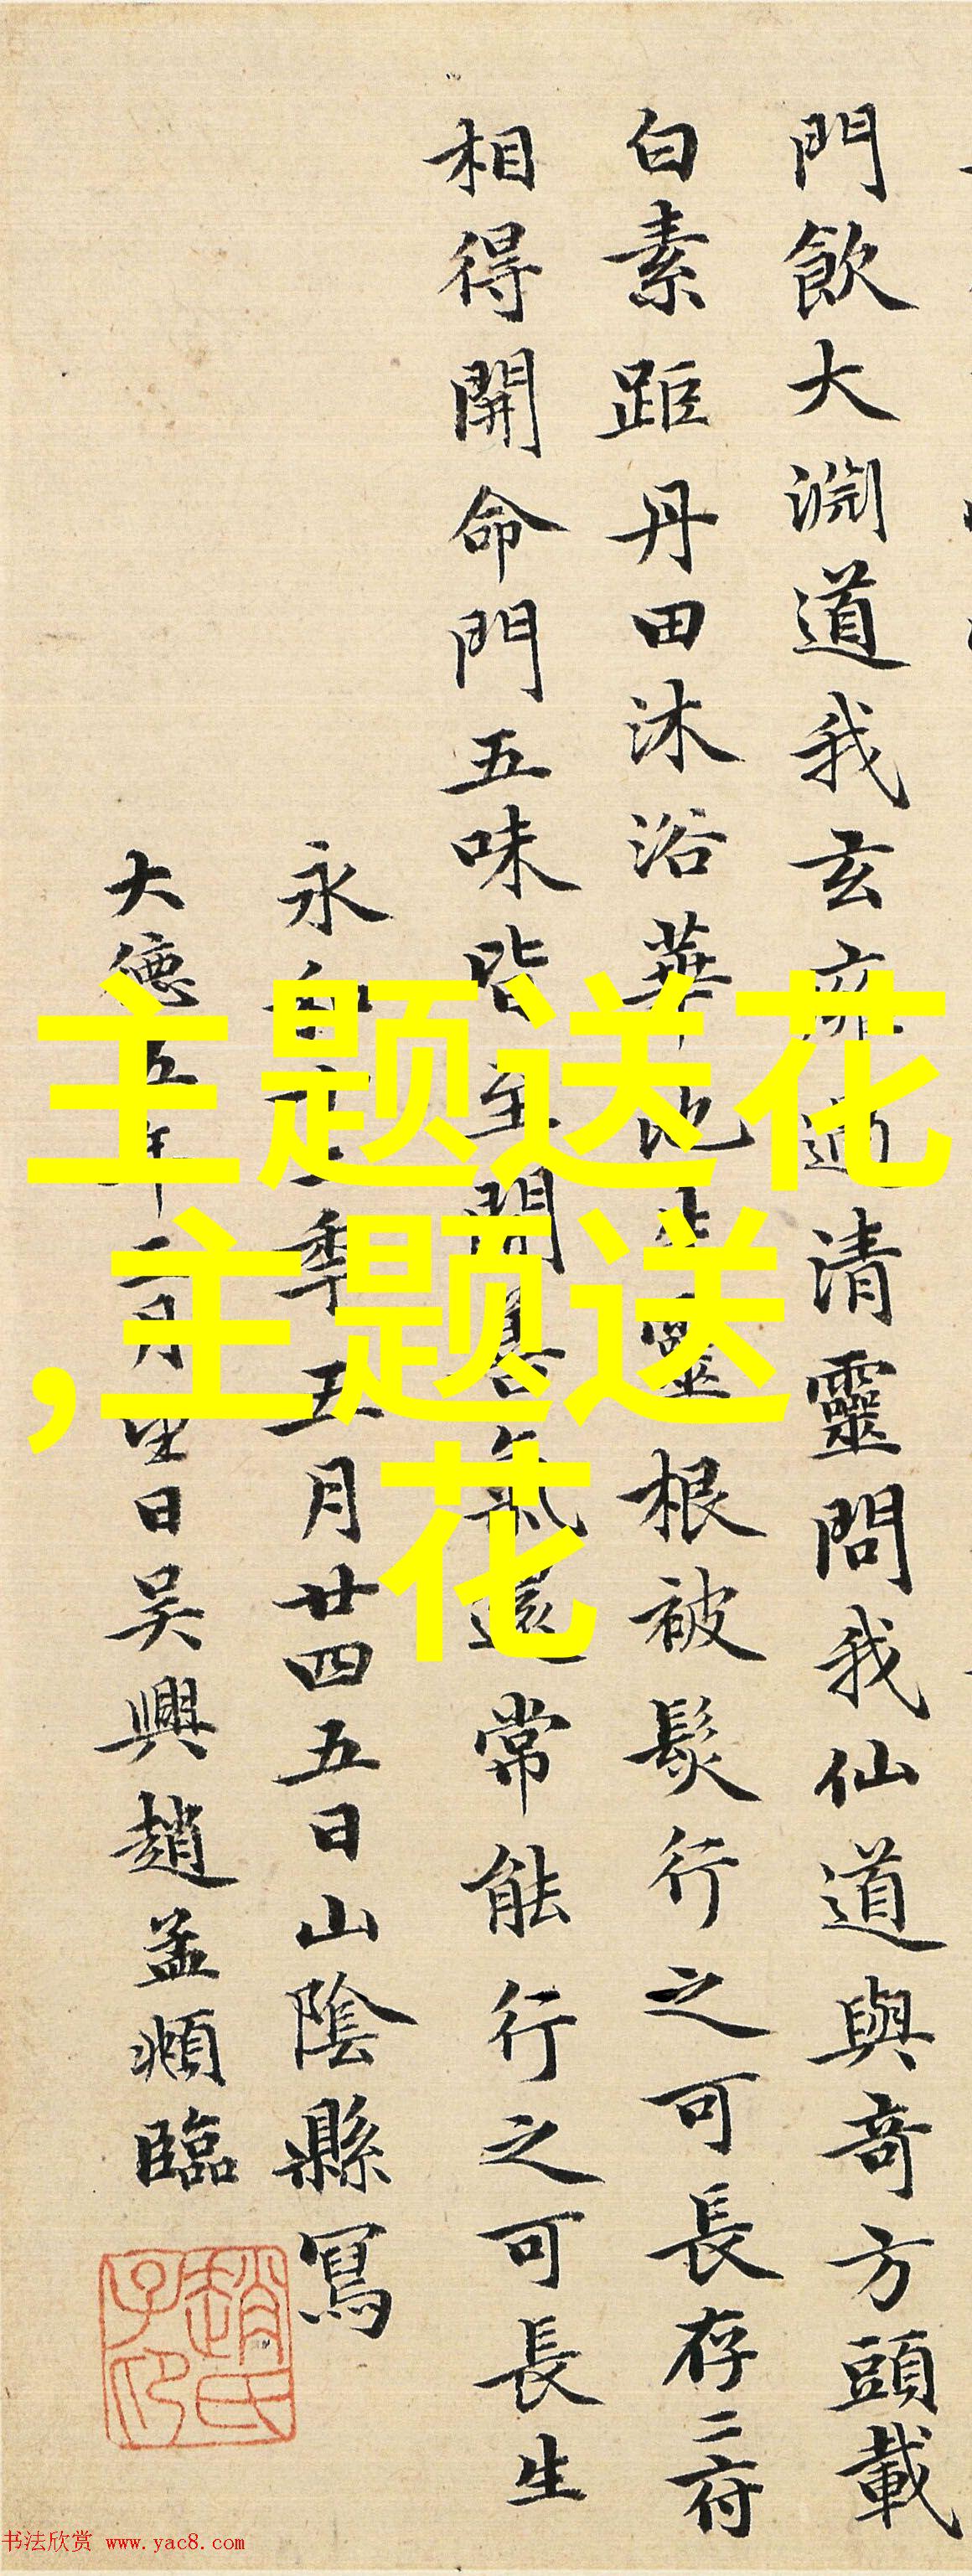 門飲大淵道我玄廱過清靈問我仙道與奇方頭載
白素距丹田沐浴華池生靈根被髮行之可長存二府
相得開命門五味皆至開善氣還常能行之可長生
永和十二年五月廿四五日山陰縣寫
大德五年二月望日吴興趙孟頫臨
趙氏子印
主题送花
,主题送
花
书法欣赏 www.yac8.com